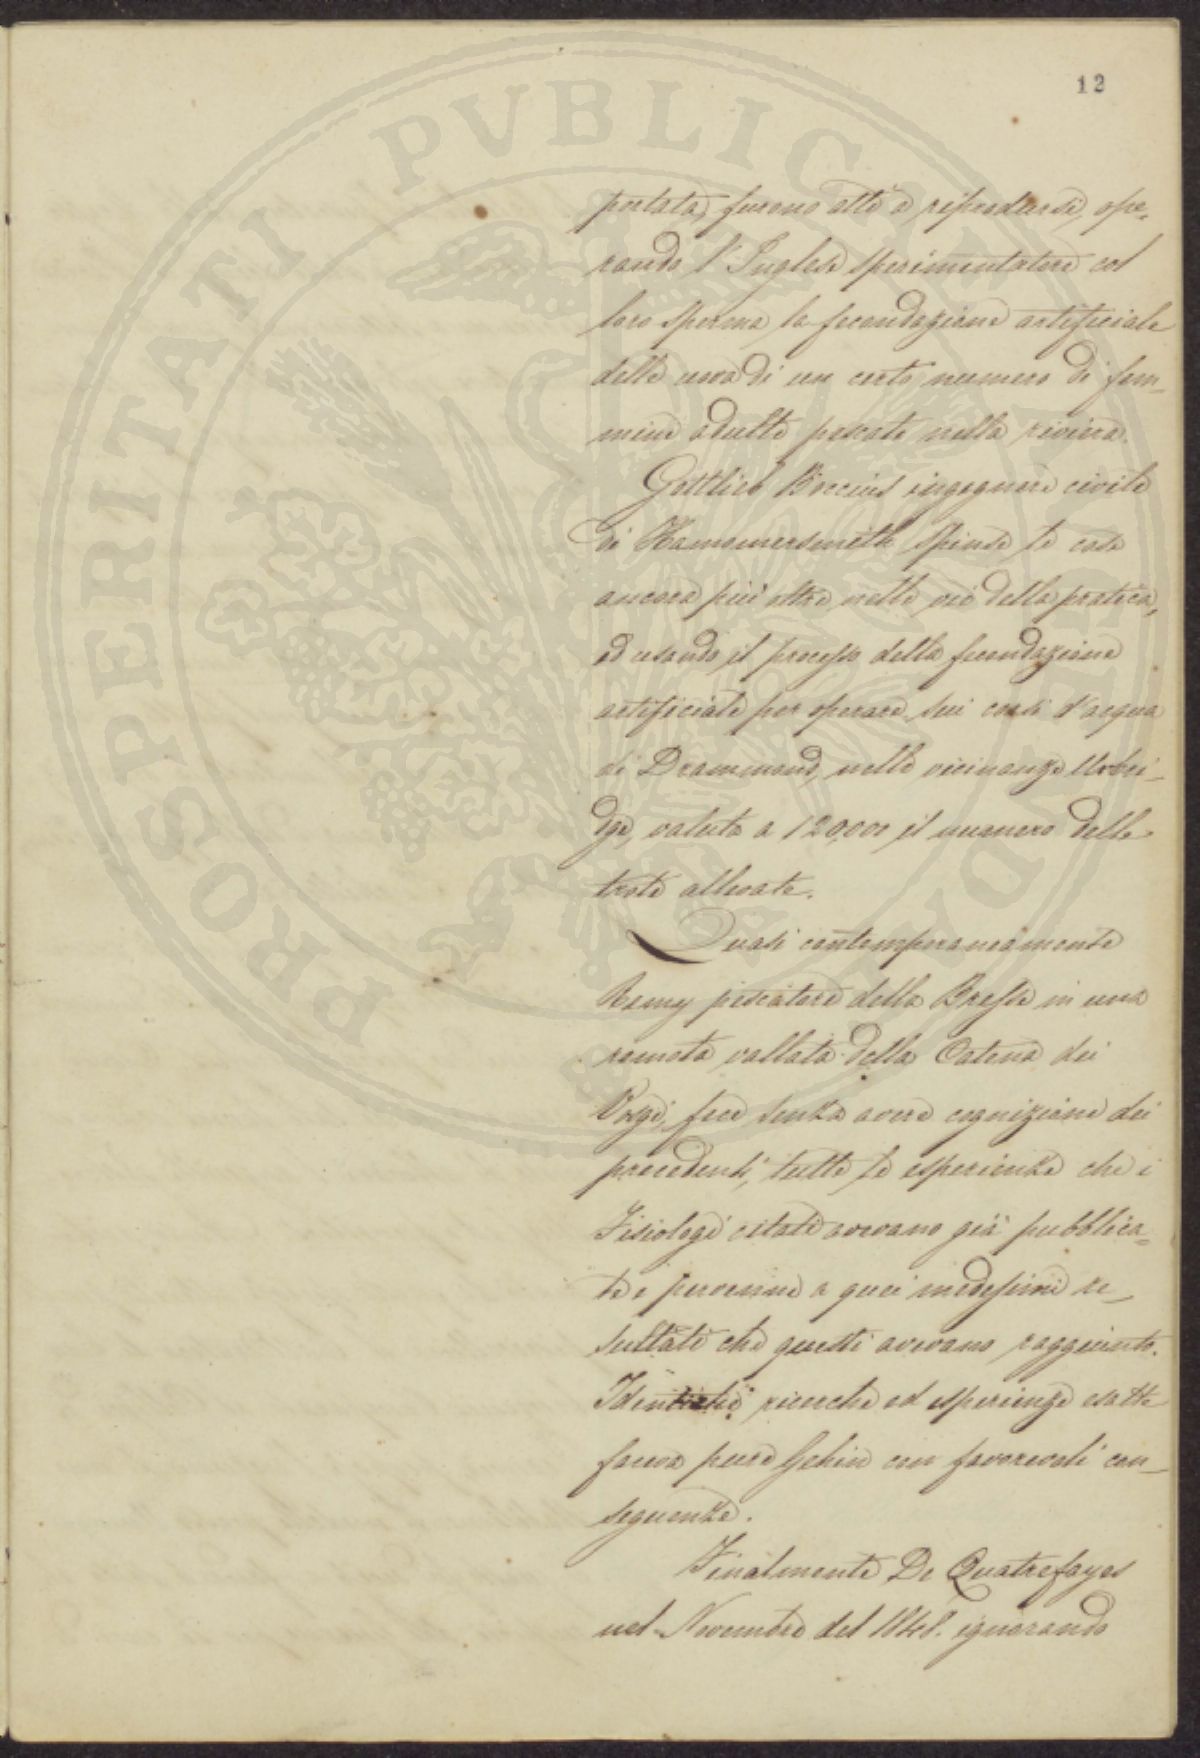 12
PROSPERITATI PUBLICAE
portata, furono atti a riprodursi, ope=
rando l'Inglese sperimentatore col
loro sperma la fecondazione artificiale
delle uova di un certo numero di fem=
mine adulte pescate nella riviera.
Gottlieb Boccius ingegnere civile
di Hammersmith spinse le cose
ancora più oltre nelle vie della pratica,
ed usando il processo della fecondazione
artificiale per operare sui corsi d'acqua
di Drammond, nelle vicinanze Uxbri=
dge, valuta a 120,000 il numero delle
trote allevate.
Quasi contemporaneamente
Remy pescatore della Bresse in una
remota vallata della Catena dei
Vosgi, fece senza avere cognizione dei
precedenti, tutte le esperienze che i
Fisiologi citati avevano già pubblica=
te e pervenne a quei medesimi re=
sultati che questi avevano raggiunto.
Identiche ricerche ed esperienze esatte
faceva pure Gehin con favorevoli con=
seguenze.
Finalmente De Quatrefages
nel Novembre del 1848. ignorando